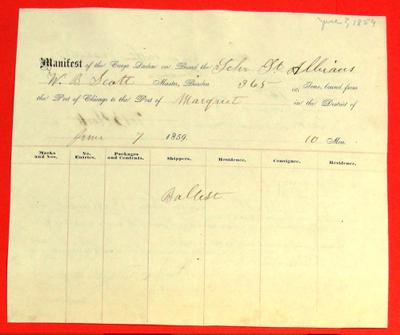 June 7, 1859
Manifest of the Cargo Laden on Board the Schr St Albans
W. B. Scott Master, Burden 365 Tons, bound from
the Port of Chicago to the Port of Marquet in the District of
June 7 1859. 10 Men.
Marks and Nos. No. Entries. Packages and Contents. Shippers. Residence. Consignee. Residence.
Ballest